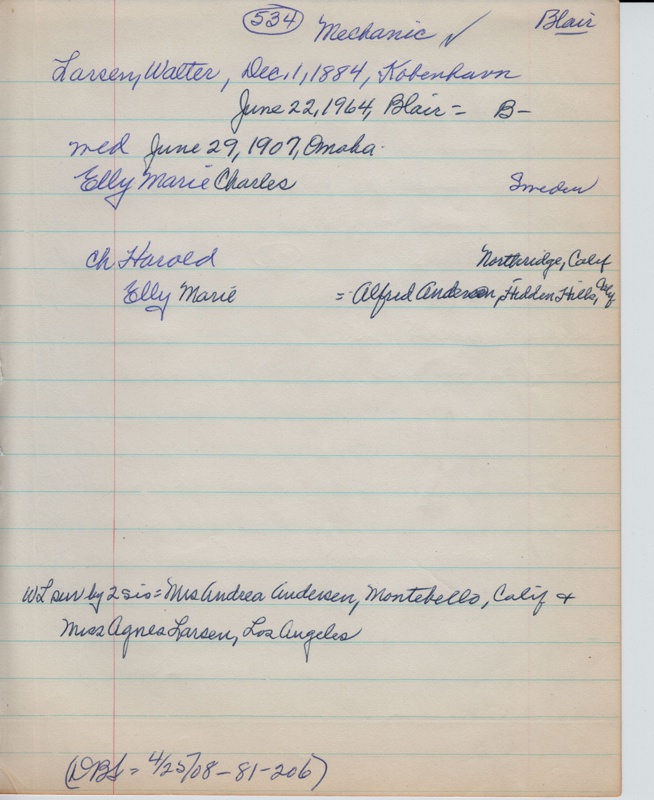 534 Mechanic ✓ Blair
Larsen, Walter, Dec. 1, 1884, Kobenhavn
June 22, 1964, Blair = B-
med June 29, 1907, Omaha.
Elly Marie Charles Sweden
ch Harold Northridge, Calif
Elly Marie = Alfred Andersen, Hidden Hills,
WL sur by 2 sis = Mrs Andrea Andersen, Montebello, Calif +
Miss Agnes Larsen, Los Angeles
4/25/08-81-206)